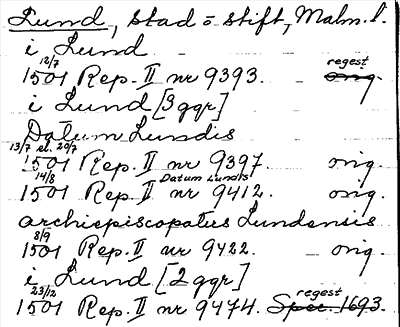 Lund, stad o stift, Malm. l.
i Lund
12/7 regest
1501 Rep. II nr 9393. orig.
i Lund [3 ggr]
Datum Lundis
13/7 el. 20/7
1501 Rep. II nr 9397. orig.
14/8 Datum Lundis
1501 Rep. II nr 9412. orig.
archiepiscopatus Lundensis
8/9
1501 Rep. II nr 9422. orig.
i Lund [2 ggr]
23/12 regest
1501 Rep. II nr 9474. Spec. 1693.